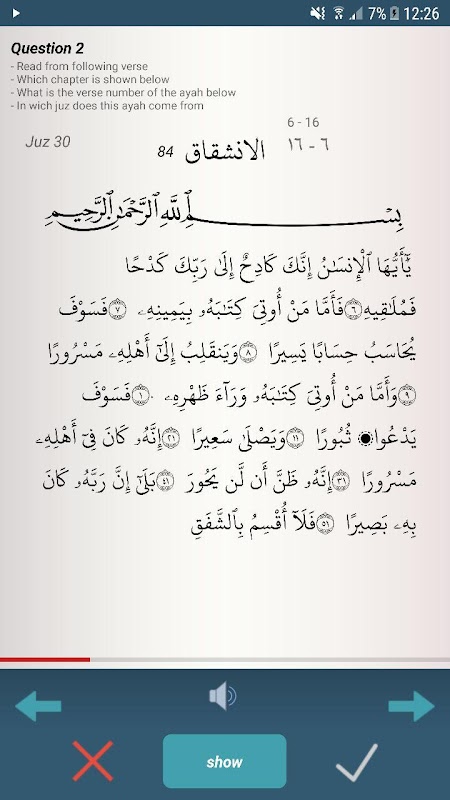 7% 12:26
Question 2
- Read from following verse
- Which chapter is shown below
- What is the verse number of the ayah below
- In wich juz does this ayah come from
6 - 16
Juz 30
84 الانشقاق
١٦ - ٦
بِسْمِ ٱللَّهِ ٱلرَّحْمَٰنِ ٱلرَّحِيمِ
يَٰٓأَيُّهَا ٱلْإِنسَٰنُ إِنَّكَ كَادِحٌ إِلَىٰ رَبِّكَ كَدْحًا
فَمُلَٰقِيهِ ٦ فَأَمَّا مَنْ أُوتِىَ كِتَٰبَهُۥ بِيَمِينِهِۦ ٧ فَسَوْفَ
يُحَاسَبُ حِسَابًا يَسِيرًا ٨ وَيَنقَلِبُ إِلَىٰٓ أَهْلِهِۦ مَسْرُورًا
٩ وَأَمَّا مَنْ أُوتِىَ كِتَٰبَهُۥ وَرَآءَ ظَهْرِهِۦ ١٠ فَسَوْفَ
يَدْعُوا۟ ثُبُورًا ١١ وَيَصْلَىٰ سَعِيرًا ٢١ إِنَّهُۥ كَانَ فِىٓ أَهْلِهِۦ
مَسْرُورًا ٣١ إِنَّهُۥ ظَنَّ أَن لَّن يَحُورَ ٤١ بَلَىٰٓ إِنَّ رَبَّهُۥ كَانَ
بِهِۦ بَصِيرًا ٥١ فَلَآ أُقْسِمُ بِٱلشَّفَقِ
show